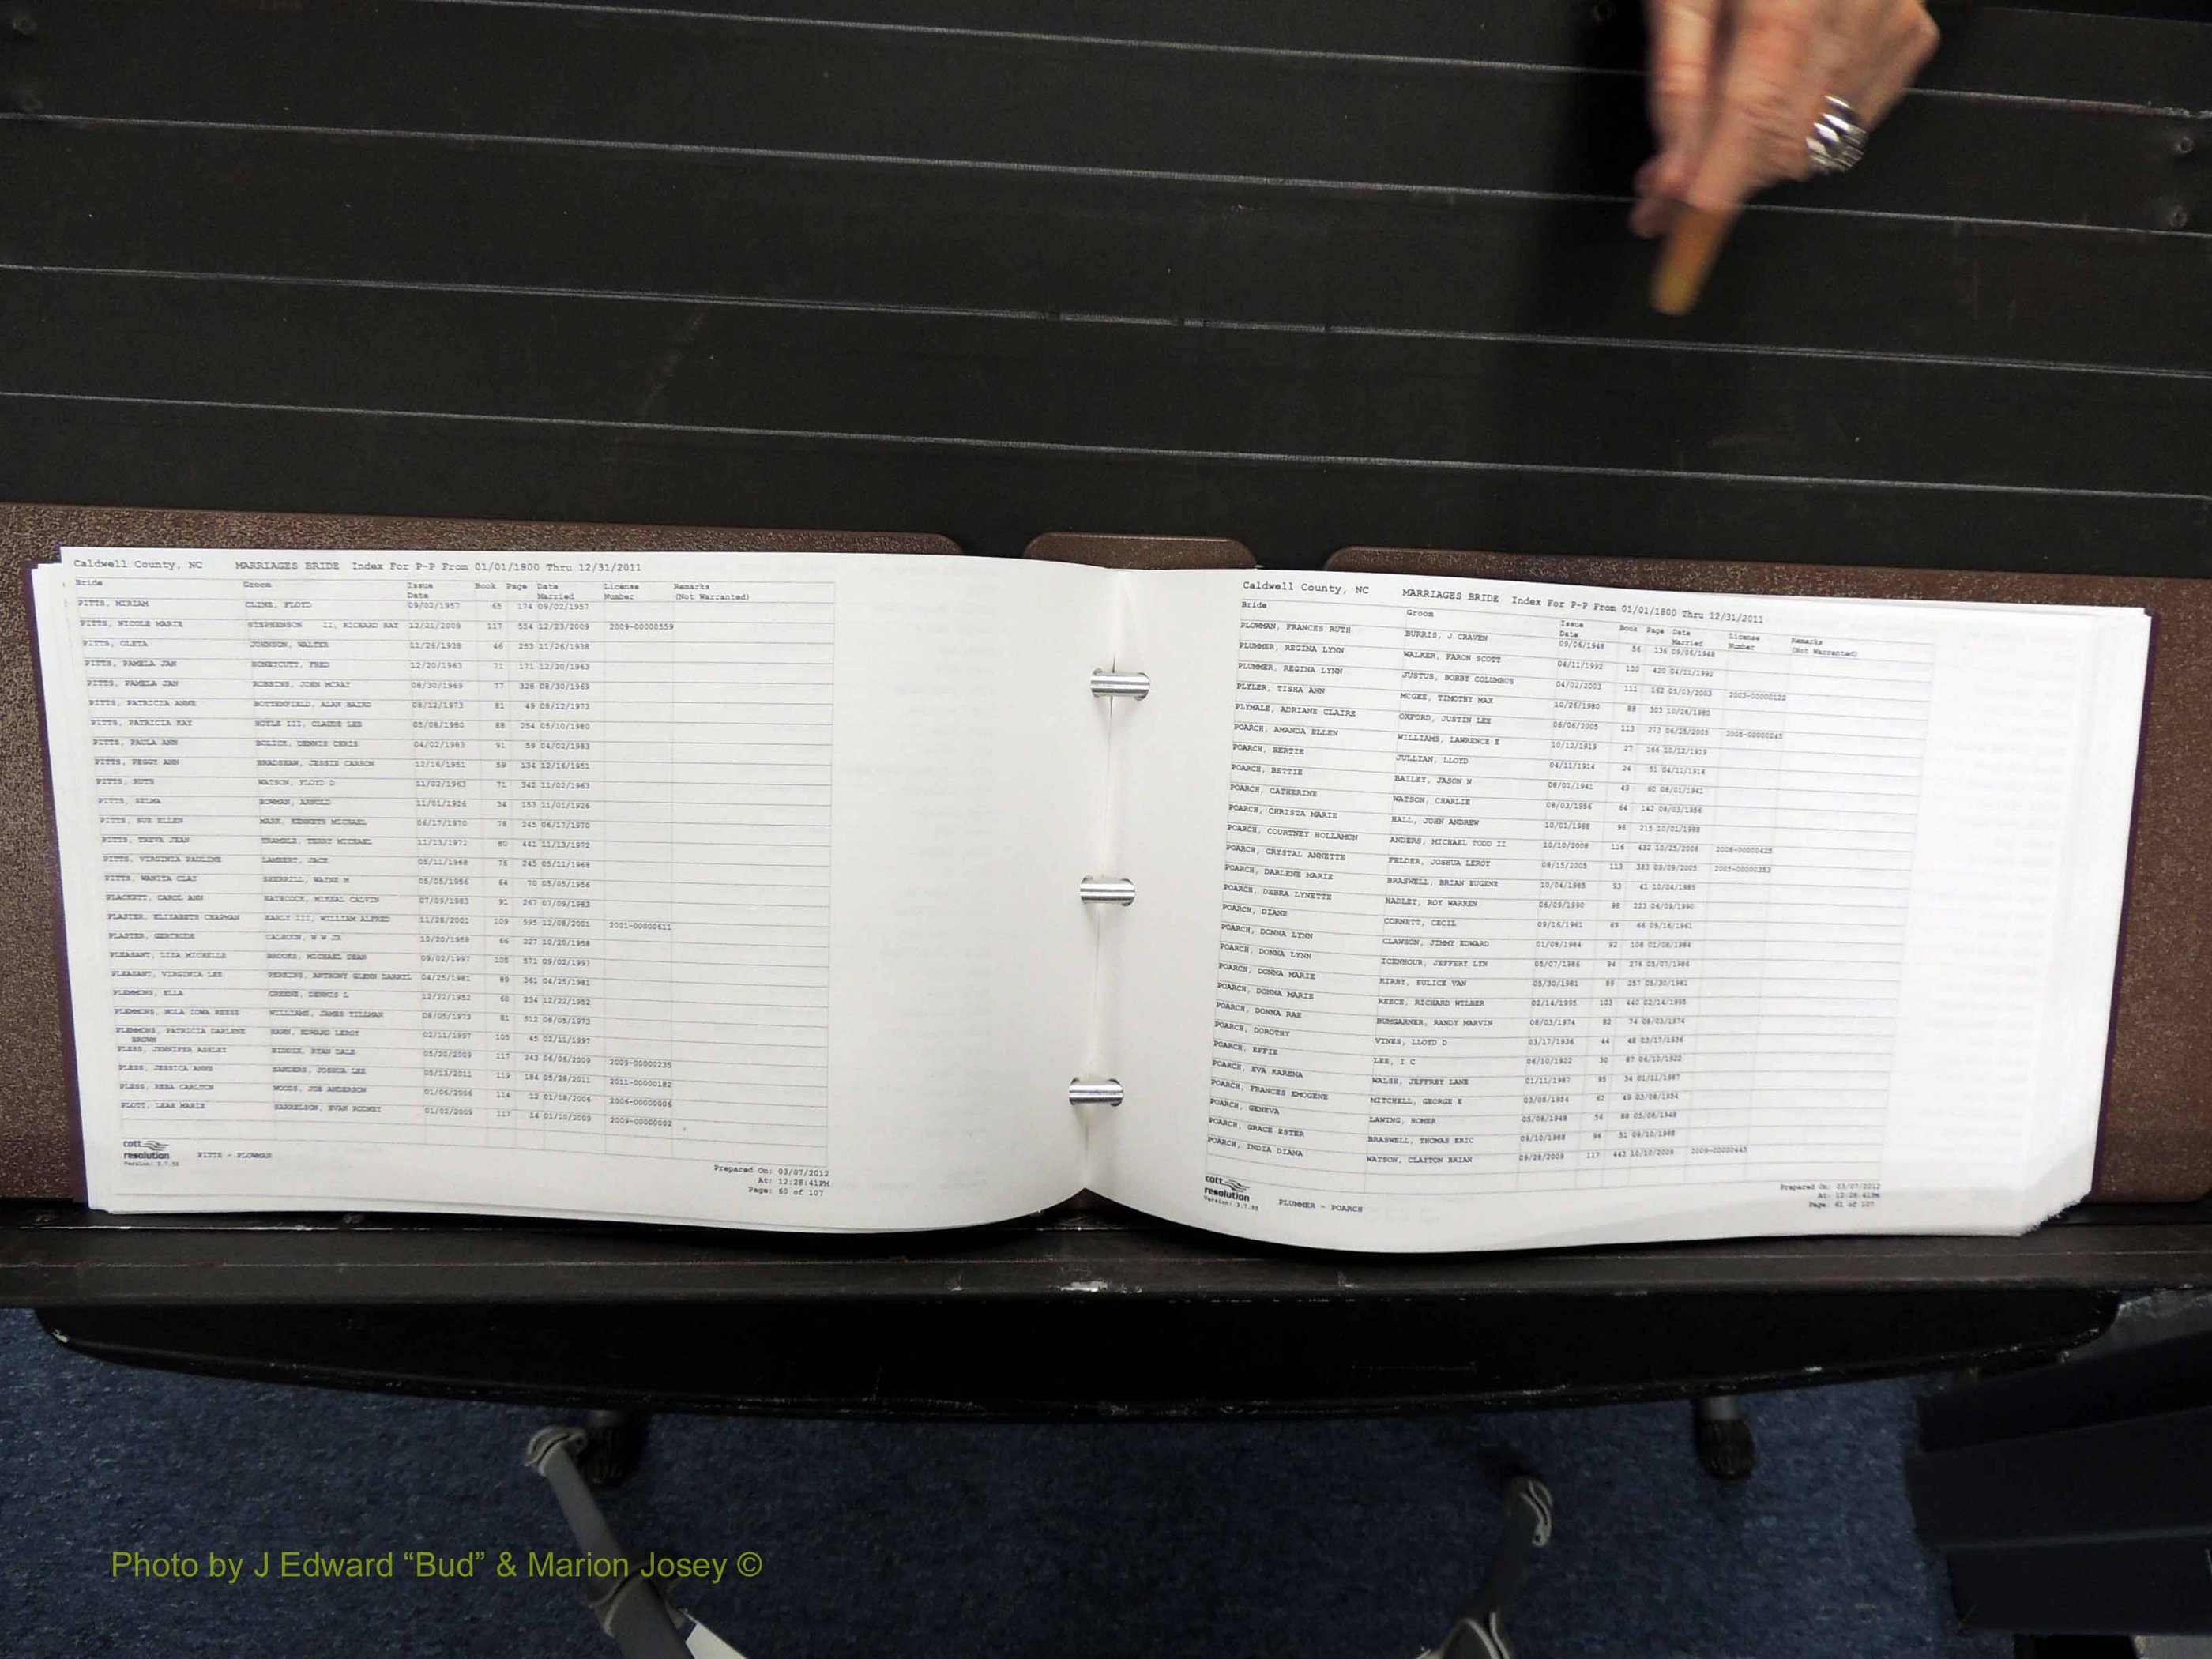 Caldwell County, NC MARRIAGES BRIDE Index For P-P From 01/01/1800 Thru 12/31/2011
Bride Groom Issue Date Book Page Date Married License Number Remarks (Not Warranted)
PITTS, MIRIAM CLINE, FLOYD 09/02/1957 65 174 09/02/1957
PITTS, NICOLE MARIE STEPHENSON II, RICHARD RAY 12/21/2009 117 554 12/23/2009 2009-00000559
PITTS, OLETA JOHNSON, WALTER 11/26/1938 46 253 11/26/1938
PITTS, PAMELA JAN HONEYCUTT, FRED 12/20/1963 71 171 12/20/1963
PITTS, PAMELA JAN ROBBINS, JOHN MCRAY 08/30/1969 77 328 08/30/1969
PITTS, PATRICIA ANNE BOTTENFIELD, ALAN BAIRD 08/12/1973 81 49 08/12/1973
PITTS, PATRICIA KAY HOYLE III, CLAUDE LEE 05/08/1980 88 254 05/10/1980
PITTS, PAULA ANN BOLICK, DENNIS CHRIS 04/02/1983 91 59 04/02/1983
PITTS, PEGGY ANN BRADSHAW, JESSIE CARSON 12/16/1951 59 134 12/16/1951
PITTS, RUTH WATSON, FLOYD D 11/02/1963 71 342 11/02/1963
PITTS, SELMA BOWMAN, ARNOLD 11/01/1926 34 153 11/01/1926
PITTS, SUE ELLEN MARK, KENNETH MICHAEL 06/17/1970 78 245 06/17/1970
PITTS, TREVA JEAN TRAMBLE, TERRY MICHAEL 11/13/1972 80 441 11/13/1972
PITTS, VIRGINIA PAULINE LAMBERT, JACK 05/11/1968 76 245 05/11/1968
PITTS, WANITA CLAY SHERRILL, WAYNE M 05/05/1956 64 70 05/05/1956
PLACKETT, CAROL ANN HATHCOCK, MIKEAL CALVIN 07/09/1983 91 267 07/09/1983
PLASTER, ELIZABETH CHAPMAN EARLY III, WILLIAM ALFRED 11/28/2001 109 595 12/08/2001 2001-00000611
PLASTER, GERTRUDE CALHOUN, W W JR 10/20/1958 66 227 10/20/1958
PLEASANT, LIZA MICHELLE BROOKS, MICHAEL DEAN 09/02/1997 105 571 09/02/1997
PLEASANT, VIRGINIA LEE PERKINS, ANTHONY GLENN DARRYL 04/25/1981 89 361 04/25/1981
PLEMMONS, ELLA GREENE, DENNIS L 12/22/1952 60 234 12/22/1952
PLEMMONS, NOLA IOWA REESE WILLIAMS, JAMES TILLMAN 08/05/1973 81 512 08/05/1973
PLEMMONS, PATRICIA DARLENE HAHN, EDWARD LEROY 02/11/1997 105 45 02/11/1997
BROWN
PLESS, JENNIFER ASHLEY RYAN DALE 05/20/2009 117 243 06/06/2009 2009-00000235
PLESS, JESSICA ANNE SANDERS, JOSHUA LEE 05/13/2011 119 184 05/28/2011 2011-00000182
PLESS, REBA CARLTON WOODS, JOE ANDERSON 01/06/2006 114 12 01/18/2006 2006-00000006
PLOTT, LEAH MARIE HARRELSON, EVAN RODNEY 01/02/2009 117 14 01/10/2009 2009-00000002
cott
resolution PITTS - PLOWMAN
Version: 3.7.55
Prepared On: 03/07/2012
At: 12:28:41PM
Page: 60 of 107
Caldwell County, NC MARRIAGES BRIDE Index For P-P From 01/01/1800 Thru 12/31/2011
Bride Groom Issue Date Book Page Date Married License Number Remarks (Not Warranted)
PLOWMAN, FRANCES RUTH BURRIS, J CRAVEN 09/06/1948 56 136 09/06/1948
PLUMMER, REGINA LYNN WALKER, FARON SCOTT 04/11/1992 100 420 04/11/1992
PLUMMER, REGINA LYNN JUSTUS, BOBBY COLUMBUS 04/02/2003 111 162 05/03/2003 2003-00000122
PLYLER, TISHA ANN MCGEE, TIMOTHY MAX 10/26/1980 88 303 10/26/1980
PLYMALE, ADRIANE CLAIRE OXFORD, JUSTIN LEE 06/06/2005 113 273 06/25/2005 2005-00000245
POARCH, AMANDA ELLEN WILLIAMS, LAWRENCE E 10/12/1919 27 166 10/12/1919
POARCH, BERTIE JULLIAN, LLOYD 04/11/1914 24 51 04/11/1914
POARCH, BETTIE BAILEY, JASON N 08/01/1941 49 60 08/01/1941
POARCH, CATHERINE WATSON, CHARLIE 08/03/1956 64 142 08/03/1956
POARCH, CHRISTA MARIE HALL, JOHN ANDREW 10/01/1988 96 215 10/01/1988
POARCH, COURTNEY HOLLAMON ANDERS, MICHAEL TODD II 10/10/2008 116 432 10/25/2008 2008-00000425
POARCH, CRYSTAL ANNETTE FELDER, JOSHUA LEROY 08/15/2005 113 383 09/09/2005 2005-00000353
POARCH, DARLENE MARIE BRASWELL, BRIAN EUGENE 10/04/1985 93 41 10/04/1985
POARCH, DEBRA LYNETTE HADLEY, ROY WARREN 06/09/1990 98 223 06/09/1990
POARCH, DIANE CORNETT, CECIL 09/16/1961 69 66 09/16/1961
POARCH, DONNA LYNN CLAWSON, JIMMY EDWARD 01/08/1984 92 108 01/08/1984
POARCH, DONNA LYNN ICENHOUR, JEFFERY LYN 05/07/1986 94 276 05/07/1986
POARCH, DONNA MARIE KIRBY, EULICE VAN 05/30/1981 89 257 05/30/1981
POARCH, DONNA MARIE REECE, RICHARD WILBER 02/14/1995 103 440 02/14/1995
POARCH, DONNA RAE BUMGARNER, RANDY MARVIN 08/03/1974 82 74 08/03/1974
POARCH, DOROTHY VINES, LLOYD D 03/17/1936 44 48 03/17/1936
POARCH, EFFIE LEE, I C 06/10/1922 30 87 06/10/1922
POARCH, EVA KARENA WALSH, JEFFREY LANE 01/11/1987 95 34 01/11/1987
POARCH, FRANCES EMOGENE MITCHELL, GEORGE E 03/08/1954 62 49 03/08/1954
POARCH, GENEVA LAWING, HOMER 05/08/1948 56 88 05/08/1948
POARCH, GRACE ESTER BRASWELL, THOMAS ERIC 09/10/1988 96 51 09/10/1988
POARCH, INDIA DIANA WATSON, CLAYTON BRIAN 09/28/2009 117 443 10/10/2009 2009-00000443
cott
resolution PLUMMER - POARCH
Version: 3.7.55
Prepared On: 03/07/2012
At: 12:28:41PM
Page: 61 of 107
Photo by J Edward “Bud” & Marion Josey ©